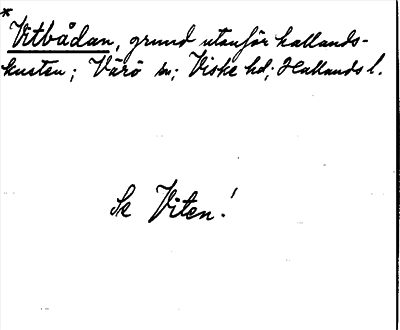 *
Vitbådan, grund utanför hallands-
kusten; Värö sn; Viske hd; Hallands l.
Se Viten!